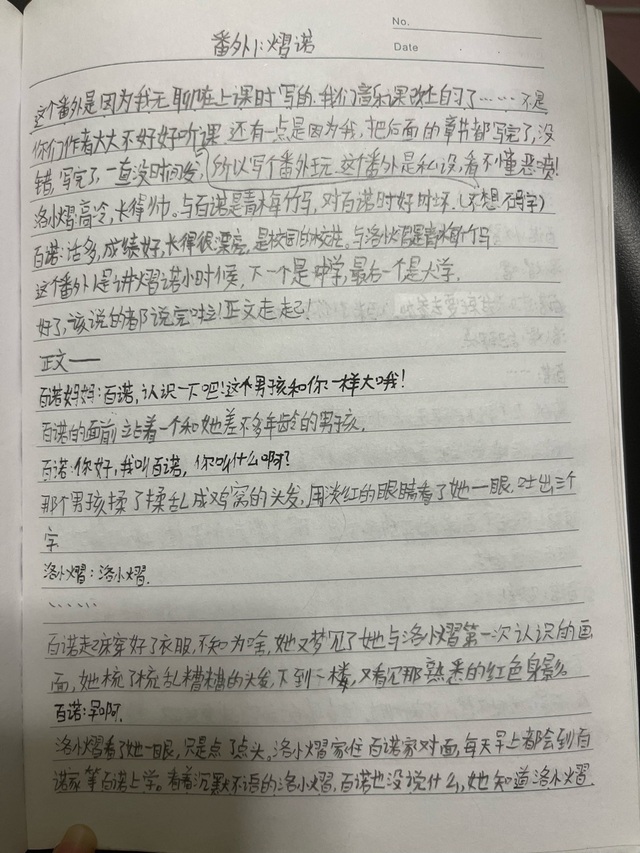 No.
Date
番外1:熠诺
这个番外是因为我无聊在上课时写的.我们音乐课改上自习了……不是
你们作者大大不好好听课.还有一点是因为我,把后面的章节都写完了,没
错,写完了,一直没时间发,所以写个番外玩.这个番外是私设,看不懂恶喷!
洛小熠高冷,长得帅.与百诺是青梅竹马,对百诺时好时坏.(不想码字)
百诺:话多,成绩好,长得很漂亮,是校园的校花.与洛小熠是青梅竹马
这个番外1是讲熠诺小时候,下一个是中学,最后一个是大学.
好了,该说的都说完啦!正文走起!
正文——
百诺妈妈:百诺,认识一下吧!这个男孩和你一样大哦!
百诺的面前站着一个和她差不多年龄的男孩.
百诺:你好,我叫百诺,你叫什么啊?
那个男孩揉了揉乱成鸡窝的头发,用淡红的眼睛看了她一眼.吐出三个
字
洛小熠:洛小熠.
、、、、、、
百诺起床穿好了衣服,不知为啥,她又梦见了她与洛小熠第一次认识的画
面,她梳了梳乱糟糟的头发,下到二楼,又看见那熟悉的红色身影
百诺:早啊.
洛小熠看了她一眼,只是点了点头.洛小熠家住百诺家对面,每天早上都会到百
诺家等百诺上学.看着沉默不语的洛小熠,百诺也没说什么,她知道洛小熠